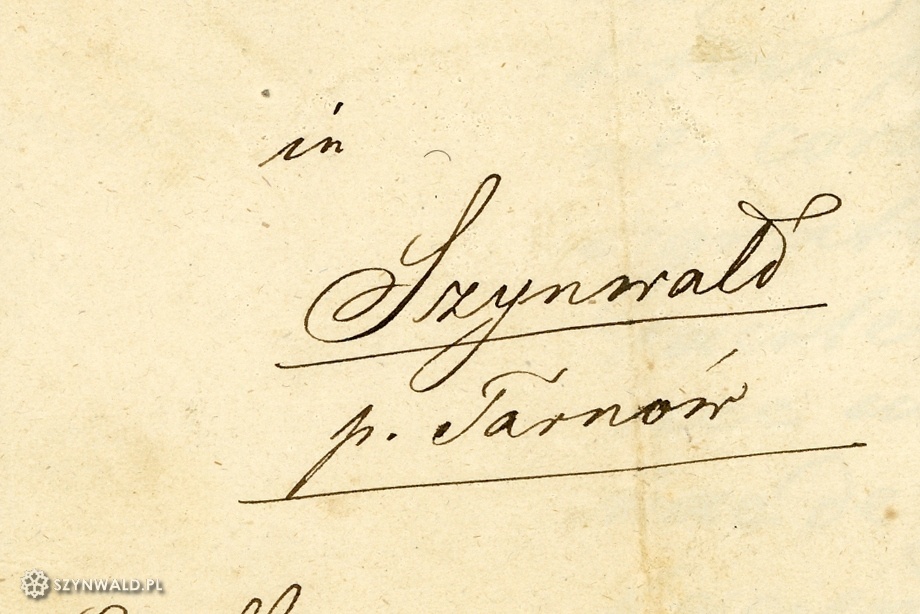 in
Szynwald
p. Tarnów
SZYNWALD.PL